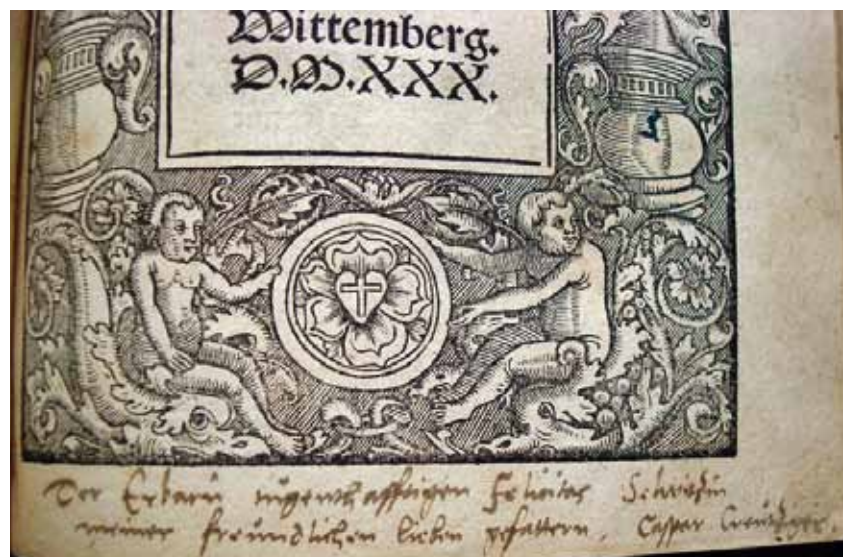 Wittemberg.
D.M.XXX.
Der Erbarn tugenthafftigen Felicitas Selmeßin
meiner freundlichen lieben gefattern, Caspar Creutziger.